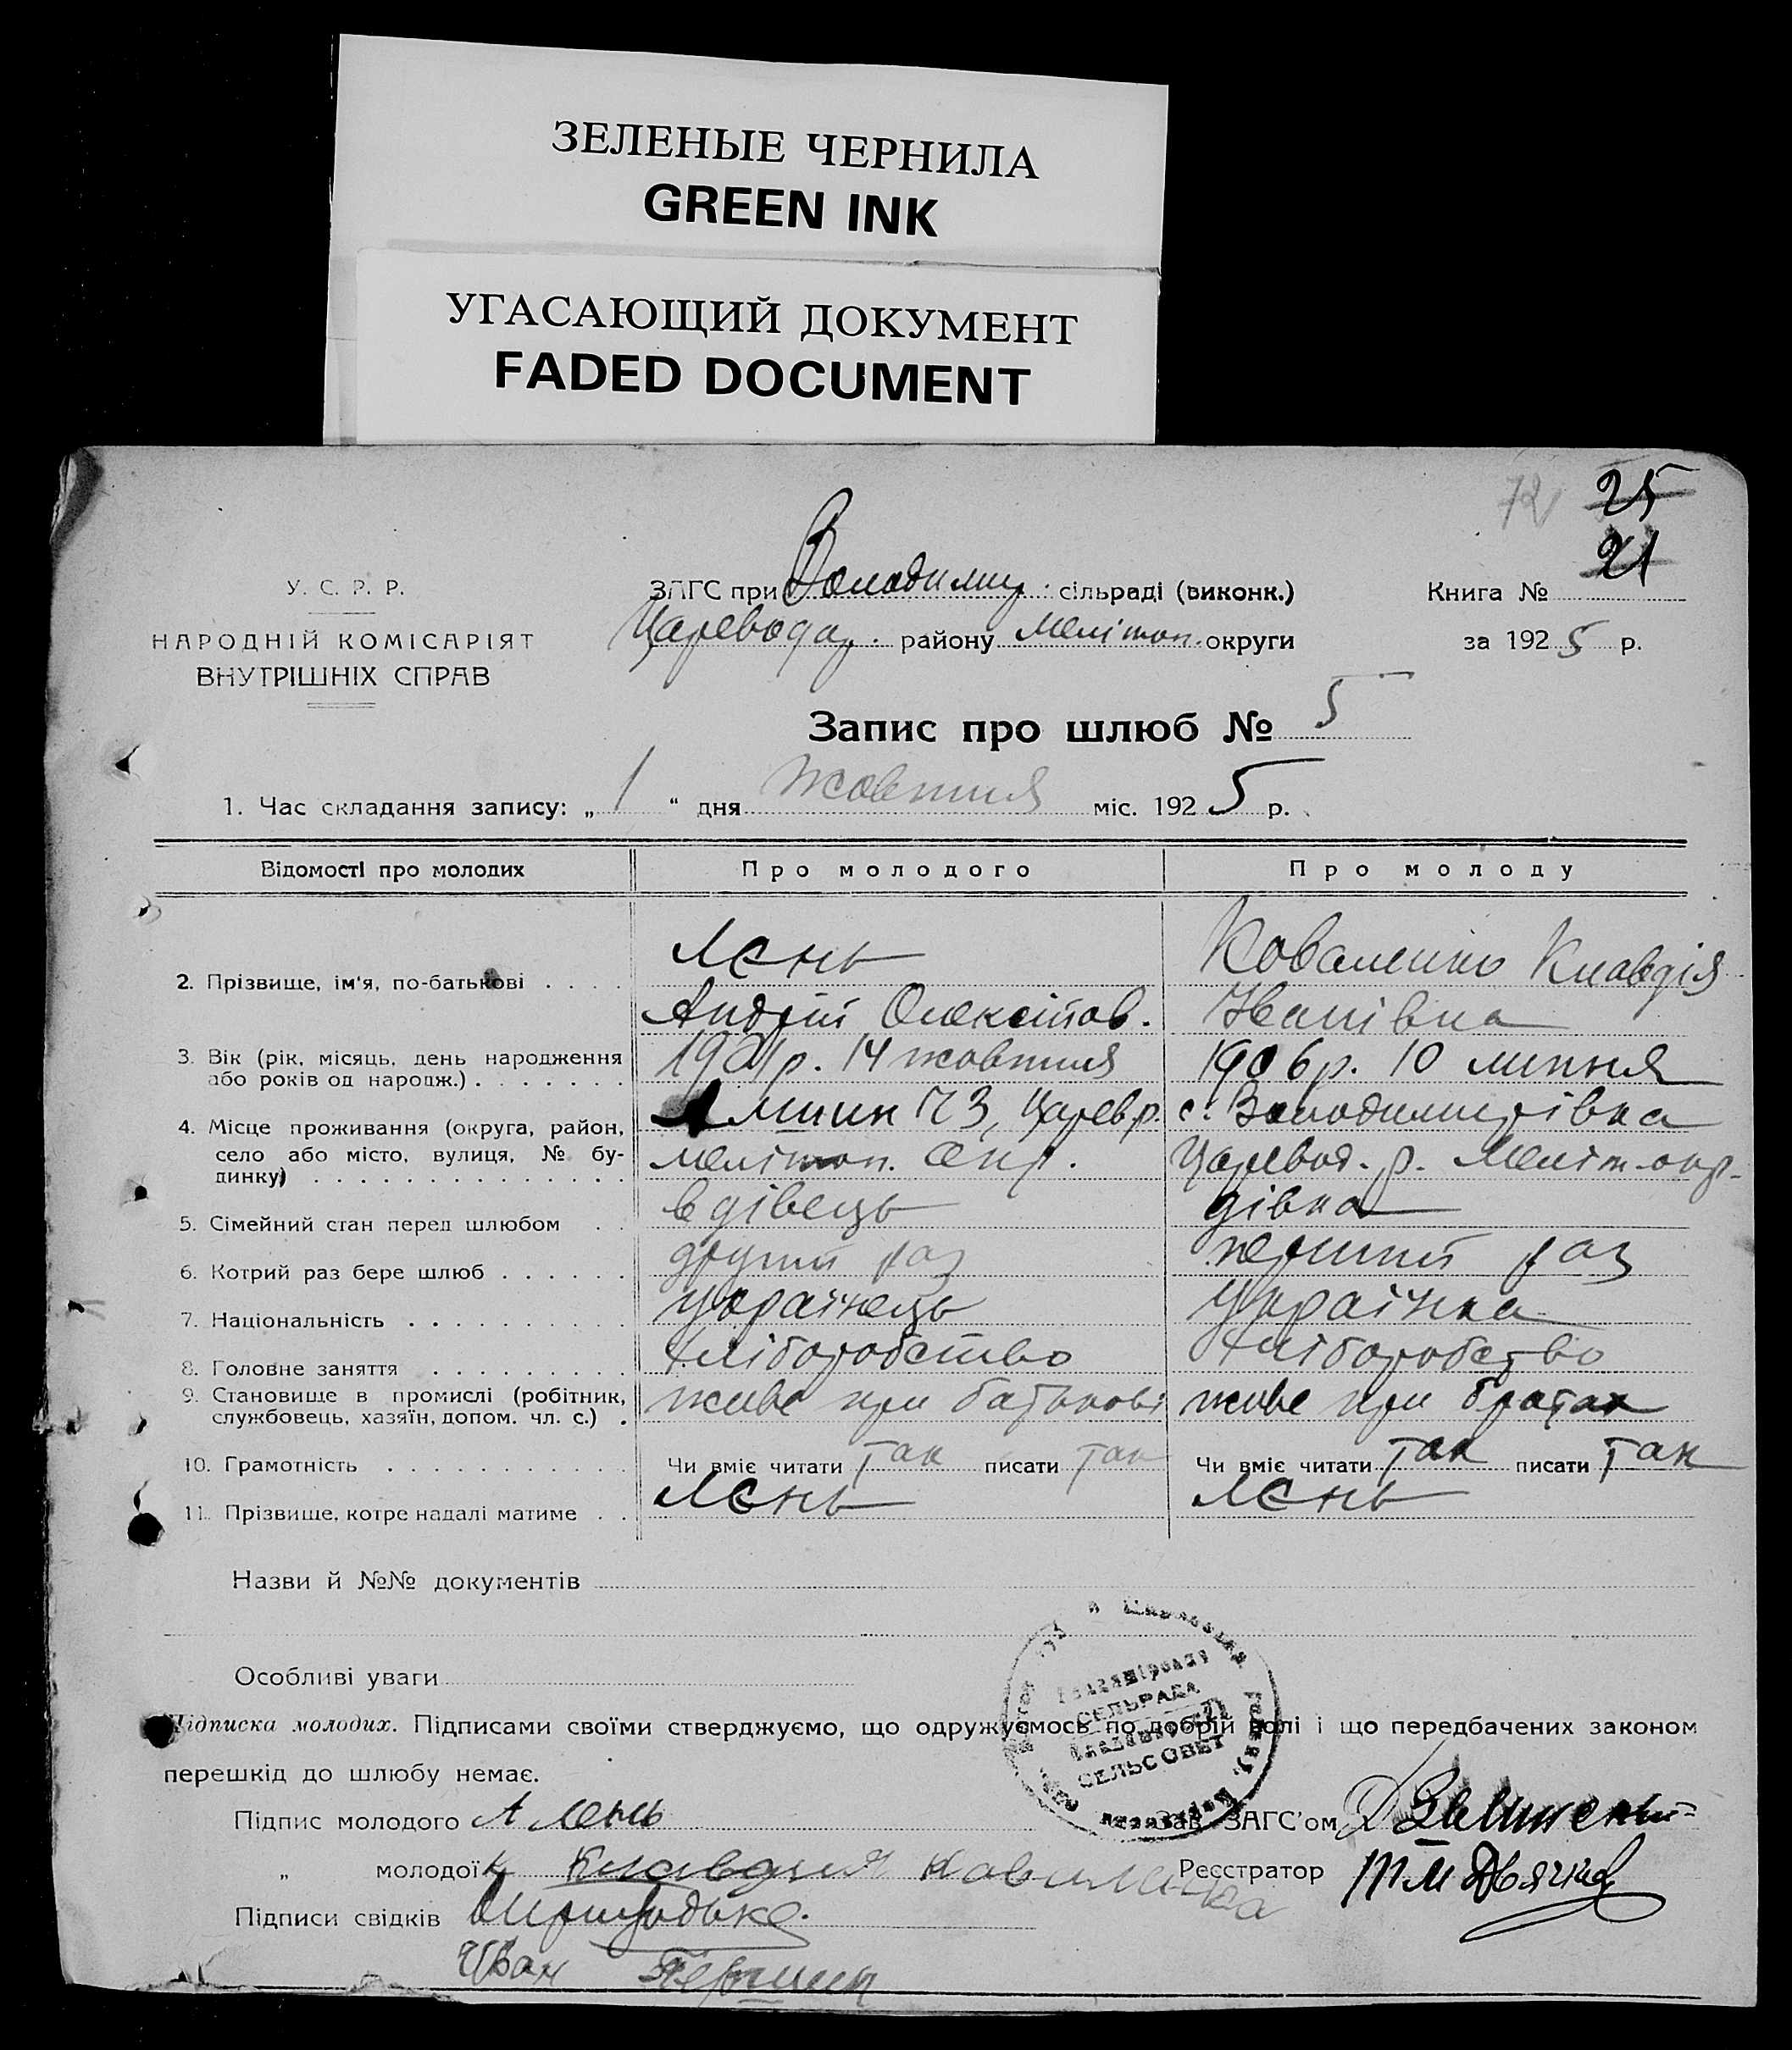 ЗЕЛЕНЫЕ ЧЕРНИЛА
GREEN INK
УГАСАЮЩИЙ ДОКУМЕНТ
FADED DOCUMENT
72 25
21
У. С. Р. Р.
НАРОДНІЙ КОМІСАРІЯТ
ВНУТРІШНІХ СПРАВ
ЗАГС при Володимир. сільраді (виконк.)
Царевода. району Меліт оп. округи
Книга №
за 1925 р.
Запис про шлюб № 5
1. Час складання запису: „ 1 “ дня жовтня міс. 1925 р.
Відомості про молодих Про молодого Про молоду
2. Прізвище, ім'я, по-батькові Лень Коваленко Клавдія
Андрій Олексійов. Іванівна
3. Вік (рік, місяць, день народження або років од народж.) 1901р. 14 жовтня 1906р. 10 липня
4. Місце проживання (округа, район, село або місто, вулиця, № будинку) Царев р. с. Володимирівка
меліт оп. окр. Царевод. р. Меліт окр.
5. Сімейний стан перед шлюбом вдівець дівка
6. Котрий раз бере шлюб другий раз перший раз
7. Національність українець Українка
8. Головне заняття хліборобство хліборобство
9. Становище в промислі (робітник, службовець, хазяїн, допом. чл. с.) живе при батькові живе при братах
10. Грамотність Чи вміє читати так писати так Чи вміє читати так писати так
11. Прізвище, котре надалі матиме Лень Лень
Назви й №№ документів
Особливі уваги
СЕЛЬРАДА
СЕЛЬСОВЕТ
Підписка молодих. Підписами своїми стверджуємо, що одружуємось по добрій волі і що передбачених законом
перешкід до шлюбу немає.
Підпис молодого А Лень Зав. ЗАГС'ом
„ молодої Клавдия Реєстратор
Підписи свідків
Иван